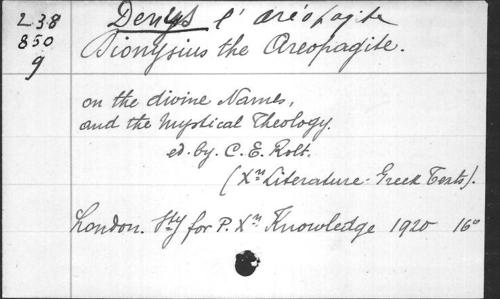 238 Denys l'aréopagite
850 Dionysius the Areopagite.
9
on the divine Names,
and the Mystical Theology.
ed. by. C. E. Rolt.
(Xⁿ Literature: Greek Texts).
London. Sty for P. Xⁿ Knowledge 1920 16°